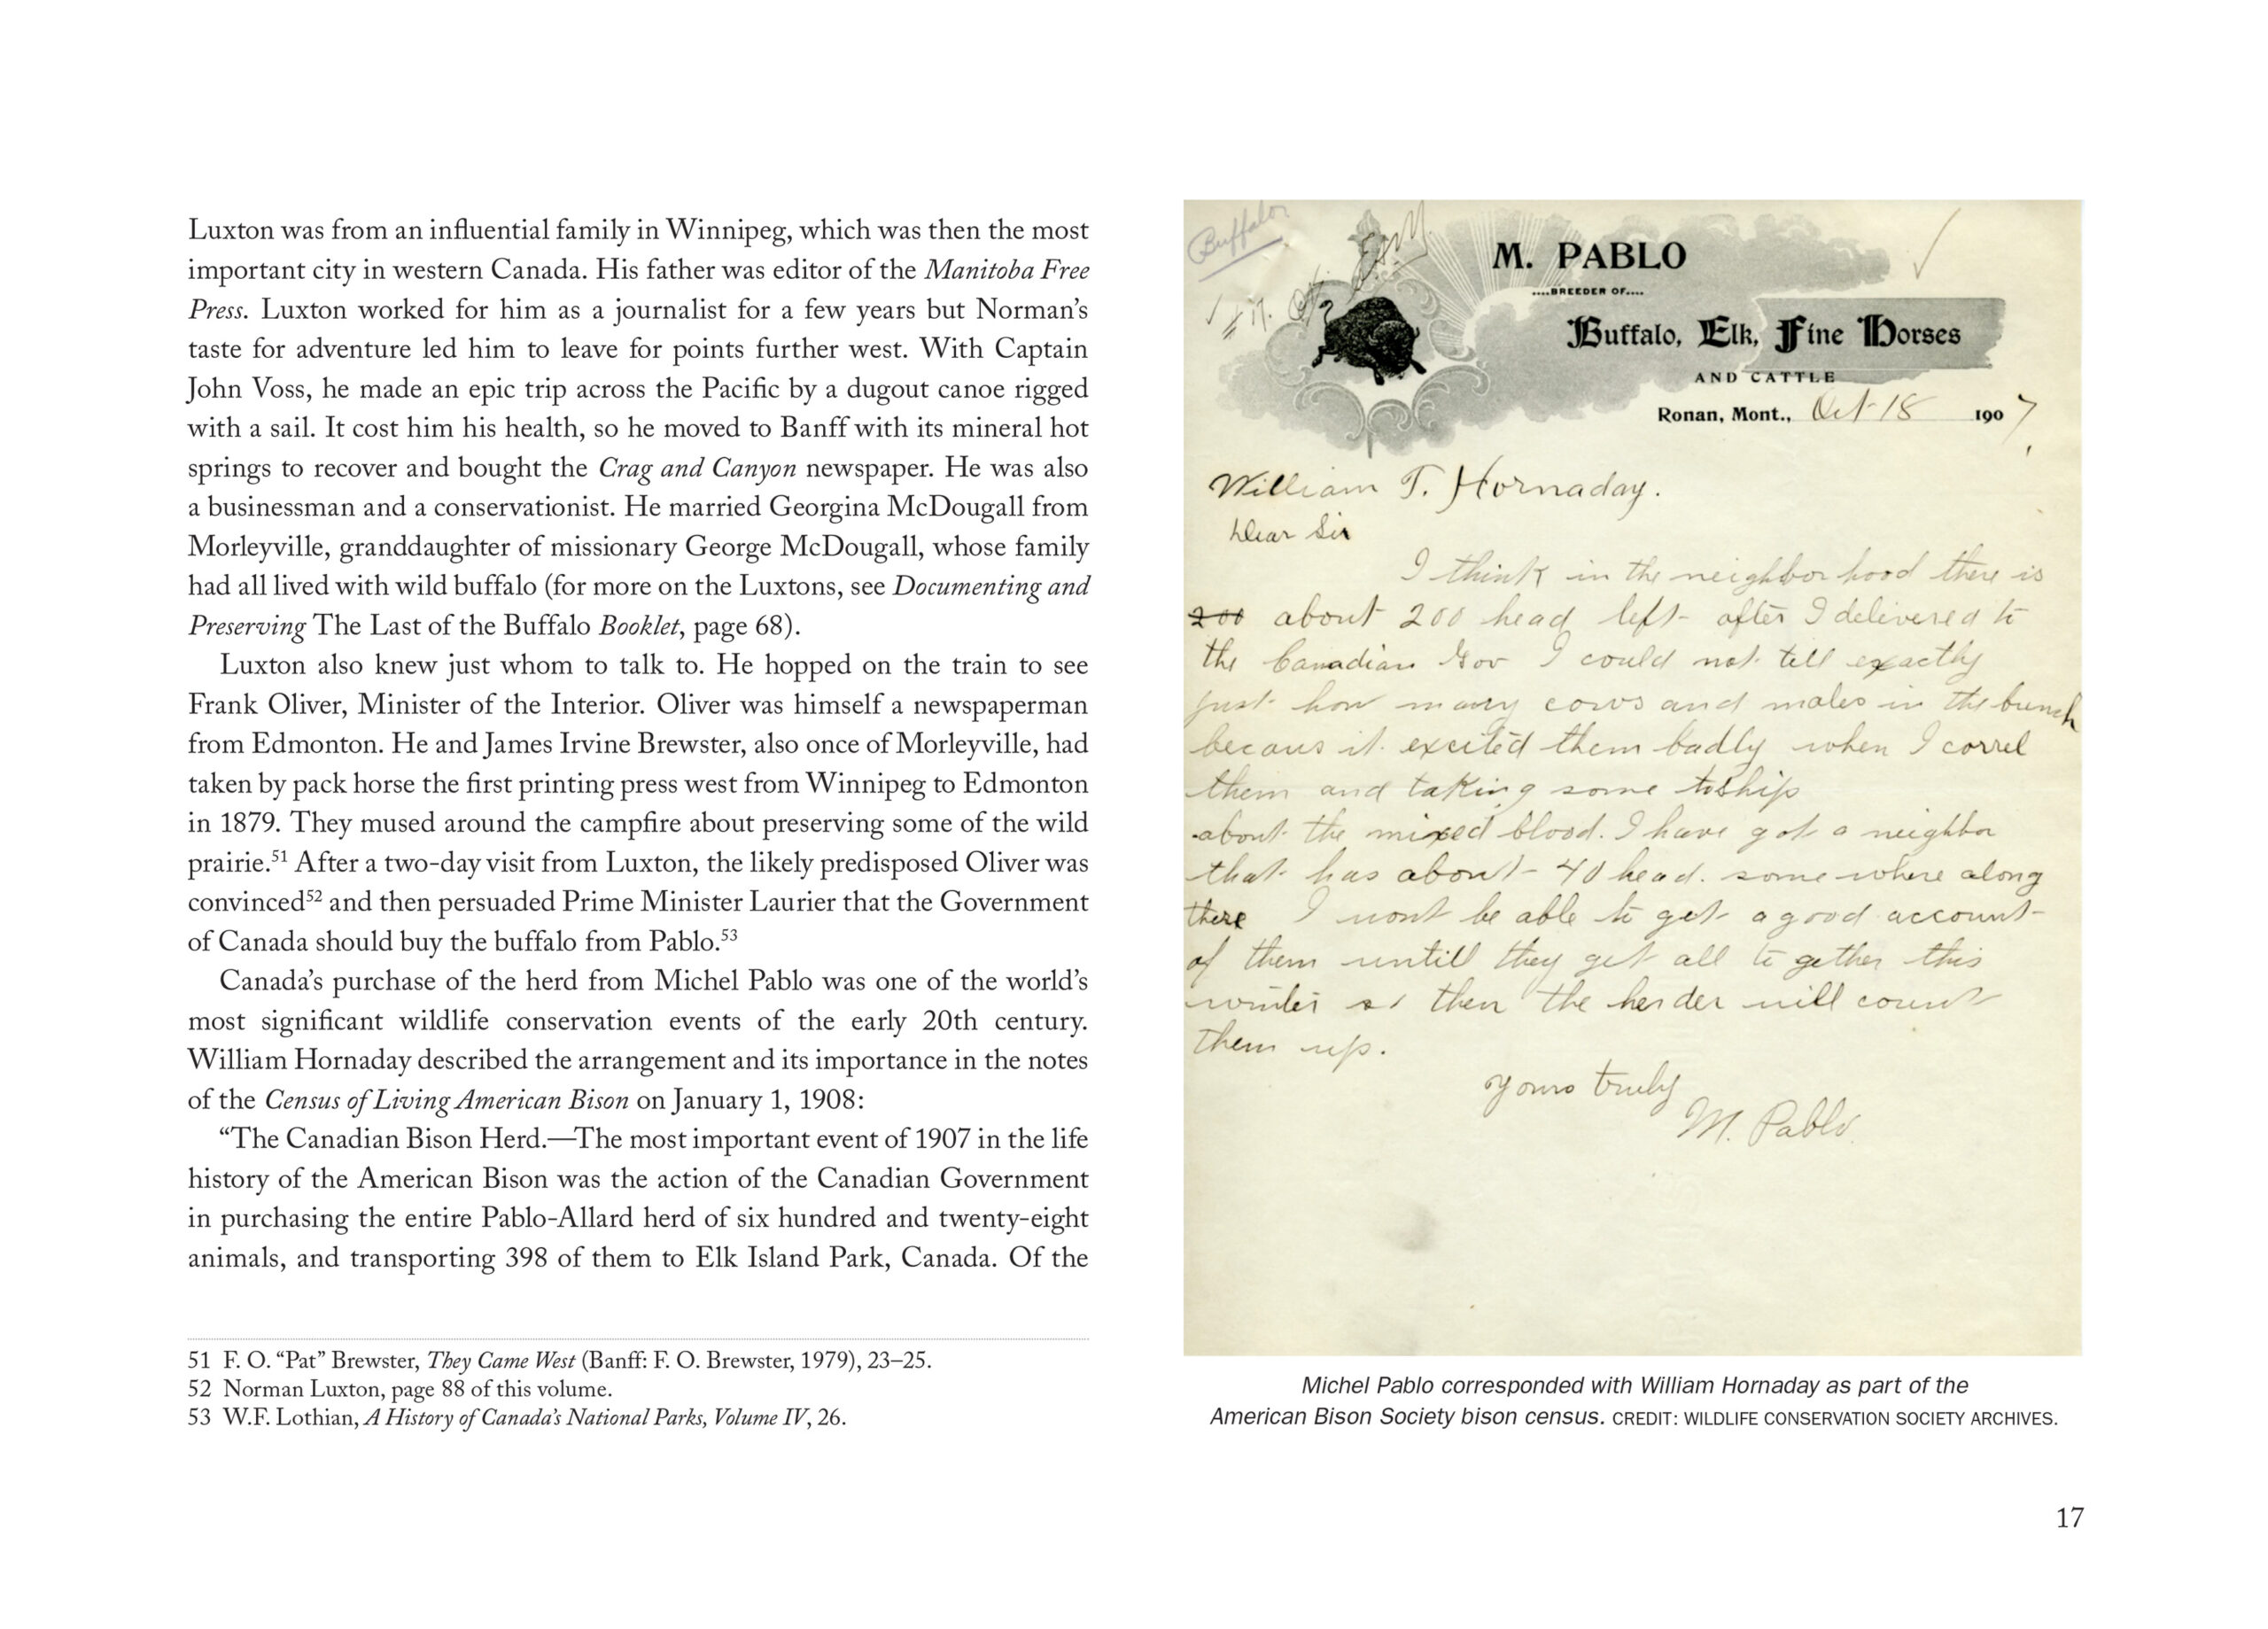 Luxton was from an influential family in Winnipeg, which was then the most
important city in western Canada. His father was editor of the Manitoba Free
Press. Luxton worked for him as a journalist for a few years but Norman’s
taste for adventure led him to leave for points further west. With Captain
John Voss, he made an epic trip across the Pacific by a dugout canoe rigged
with a sail. It cost him his health, so he moved to Banff with its mineral hot
springs to recover and bought the Crag and Canyon newspaper. He was also
a businessman and a conservationist. He married Georgina McDougall from
Morleyville, granddaughter of missionary George McDougall, whose family
had all lived with wild buffalo (for more on the Luxtons, see Documenting and
Preserving The Last of the Buffalo Booklet, page 68).
Luxton also knew just whom to talk to. He hopped on the train to see
Frank Oliver, Minister of the Interior. Oliver was himself a newspaperman
from Edmonton. He and James Irvine Brewster, also once of Morleyville, had
taken by pack horse the first printing press west from Winnipeg to Edmonton
in 1879. They mused around the campfire about preserving some of the wild
prairie.51 After a two-day visit from Luxton, the likely predisposed Oliver was
convinced52 and then persuaded Prime Minister Laurier that the Government
of Canada should buy the buffalo from Pablo.53
Canada’s purchase of the herd from Michel Pablo was one of the world’s
most significant wildlife conservation events of the early 20th century.
William Hornaday described the arrangement and its importance in the notes
of the Census of Living American Bison on January 1, 1908:
“The Canadian Bison Herd.—The most important event of 1907 in the life
history of the American Bison was the action of the Canadian Government
in purchasing the entire Pablo-Allard herd of six hundred and twenty-eight
animals, and transporting 398 of them to Elk Island Park, Canada. Of the
51 F. O. “Pat” Brewster, They Came West (Banff: F. O. Brewster, 1979), 23–25.
52 Norman Luxton, page 88 of this volume.
53 W.F. Lothian, A History of Canada’s National Parks, Volume IV, 26.
Buffalo
M. PABLO
....BREEDER OF....
Buffalo, Elk, Fine Horses
AND CATTLE
Ronan, Mont., Oct 18 1907
William T. Hornaday.
Dear Sir
I think in the neighborhood there is
200 about 200 head left after I delivered to
the Canadian Gov I could not tell exactly
just how many cows and males in the bunch
becaus it excited them badly when I correl
them and taking some to ship
about the mixed blood. I have got a neighbor
that has about 40 head. some where along
there I wont be able to get a good account
of them untill they get all to gether this
winter then the herder will count
them up.
yours truly
M. Pablo.
Michel Pablo corresponded with William Hornaday as part of the
American Bison Society bison census. CREDIT: WILDLIFE CONSERVATION SOCIETY ARCHIVES.
17